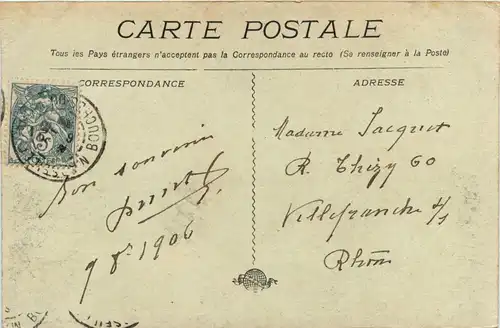 CARTE POSTALE
Tous les Pays étrangers n'acceptent pas la Correspondance au recto (Se renseigner à la Poste)
CORRESPONDANCE
Bon souvenir
9 8bre 1906
ADRESSE
Madame Jacquet
R. Thizy 60
Villefranche s/s
Rhône